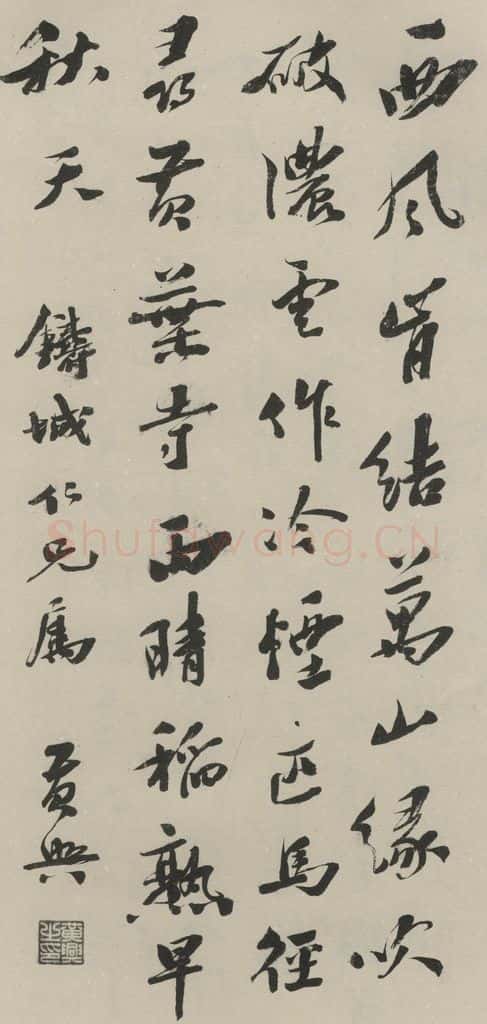 西風肯結萬山緣吹
破濃雲作冷煙匹馬徑
尋黃葉寺雨晴稻熟早
秋天
鑄城仁兄屬 黃興
黃興之印
Shufawang.CN